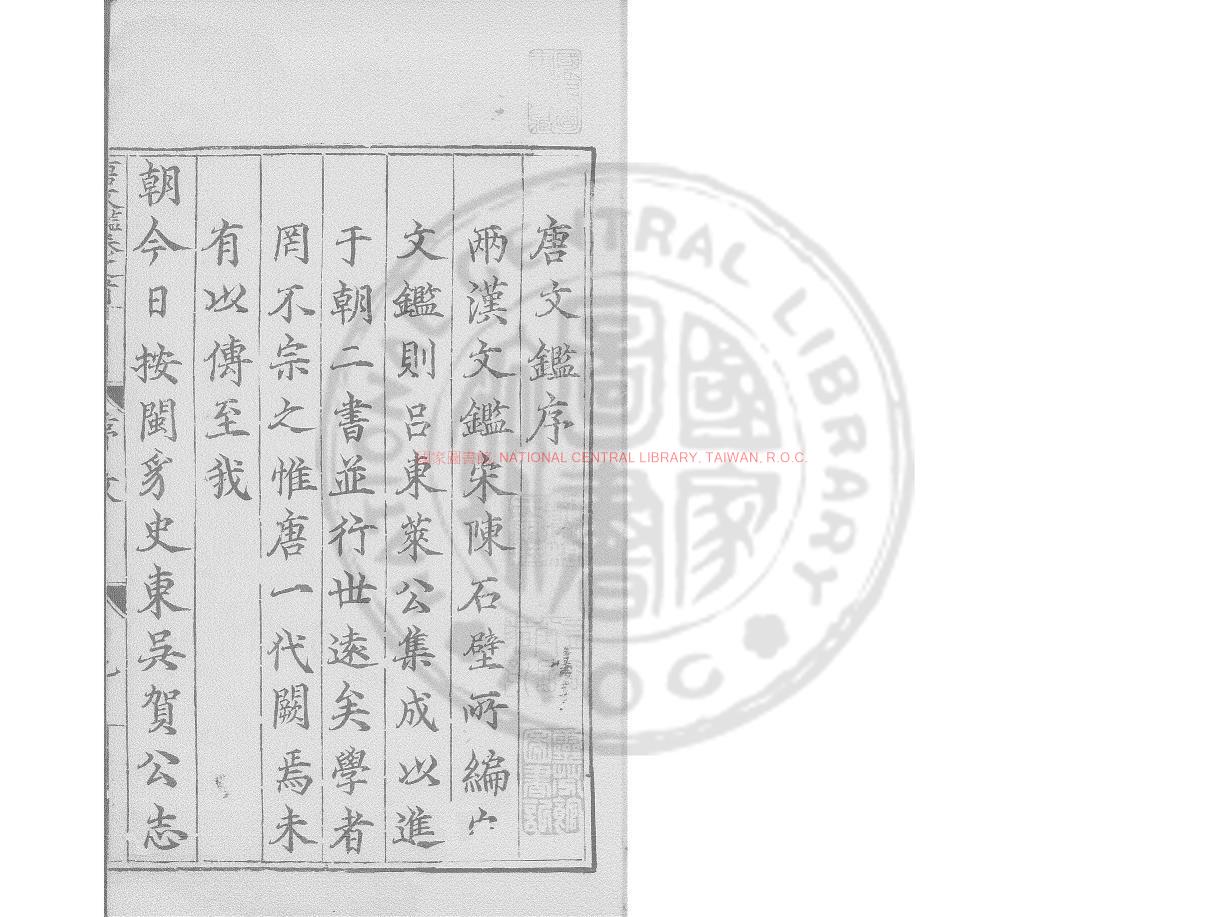 唐文鑑序
兩漢文鑑宋陳石壁所編宋
文鑑則呂東萊公集成以進
于朝二書並行世遠矣學者
罔不宗之惟唐一代闕焉未
有以傳至我
朝今日按閩豸史東吳賀公志
國家圖書館, NATIONAL CENTRAL LIBRARY, TAIWAN, R.O.C.
NATIONAL CENTRAL LIBRARY
R.O.C
國家圖書